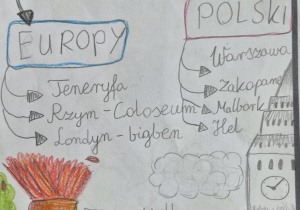 EUROPY
Teneryfa
Rzym - Coloseum
Londyn - bigben
POLSKI
Warszawa
Zakopane
Malbork
Hel